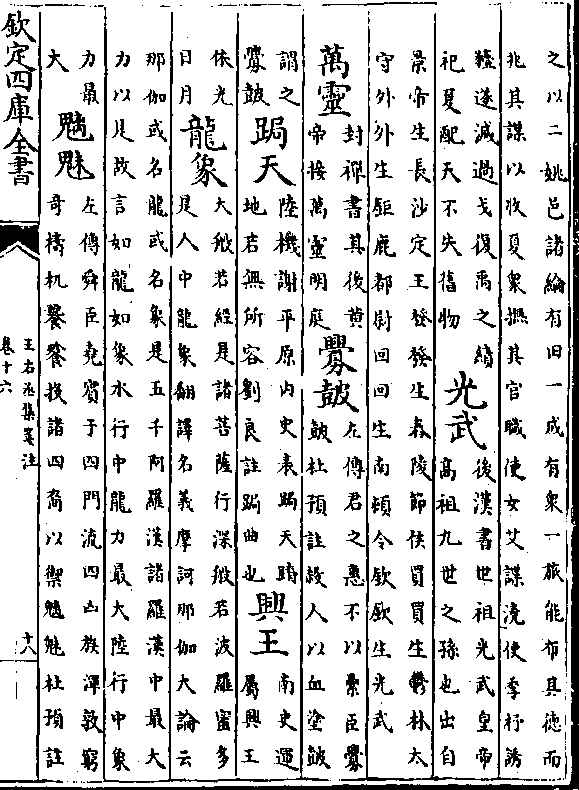 之以二姚邑諸綸有田一成有衆一旅能布其德而
兆其謀以收夏衆撫其官職使女艾諜澆使季杼誘
豷遂滅過戈復禹之績
祀夏配天不失舊物
光武
後漢書世祖光武皇帝
高祖九世之孫也出自
景帝生長沙定王發發生舂陵節侯買買生鬱林太
守外外生鉅鹿都尉回回生南頓令欽欽生光武
萬靈
封禪書其後黄
帝接萬靈明庭
釁鼓
左傳君之惠不以纍臣釁
鼓杜預註殺人以血塗鼓
謂之
釁鼓
跼天
陸機謝平原内史表跼天蹐
地若無所容劉良註跼曲也
興王
南史運
屬興王
依光
日月
龍象
大般若經是諸菩薩行深般若波羅蜜多
是人中龍象翻譯名義摩訶那伽大論云
那伽或名龍或名象是五千阿羅漢諸羅漢中最大
力以是故言如龍如象水行中龍力最大陸行中象
力最
大
魑魅
左傳舜臣堯賓于四門流四凶族渾敦窮
奇檮杌饕餮投諸四裔以禦魑魅杜預註
欽定四庫全書
王右丞集箋注
卷十六
十八